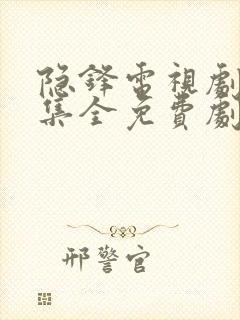 隐鋒電視劇
集全免費劇
邢警官